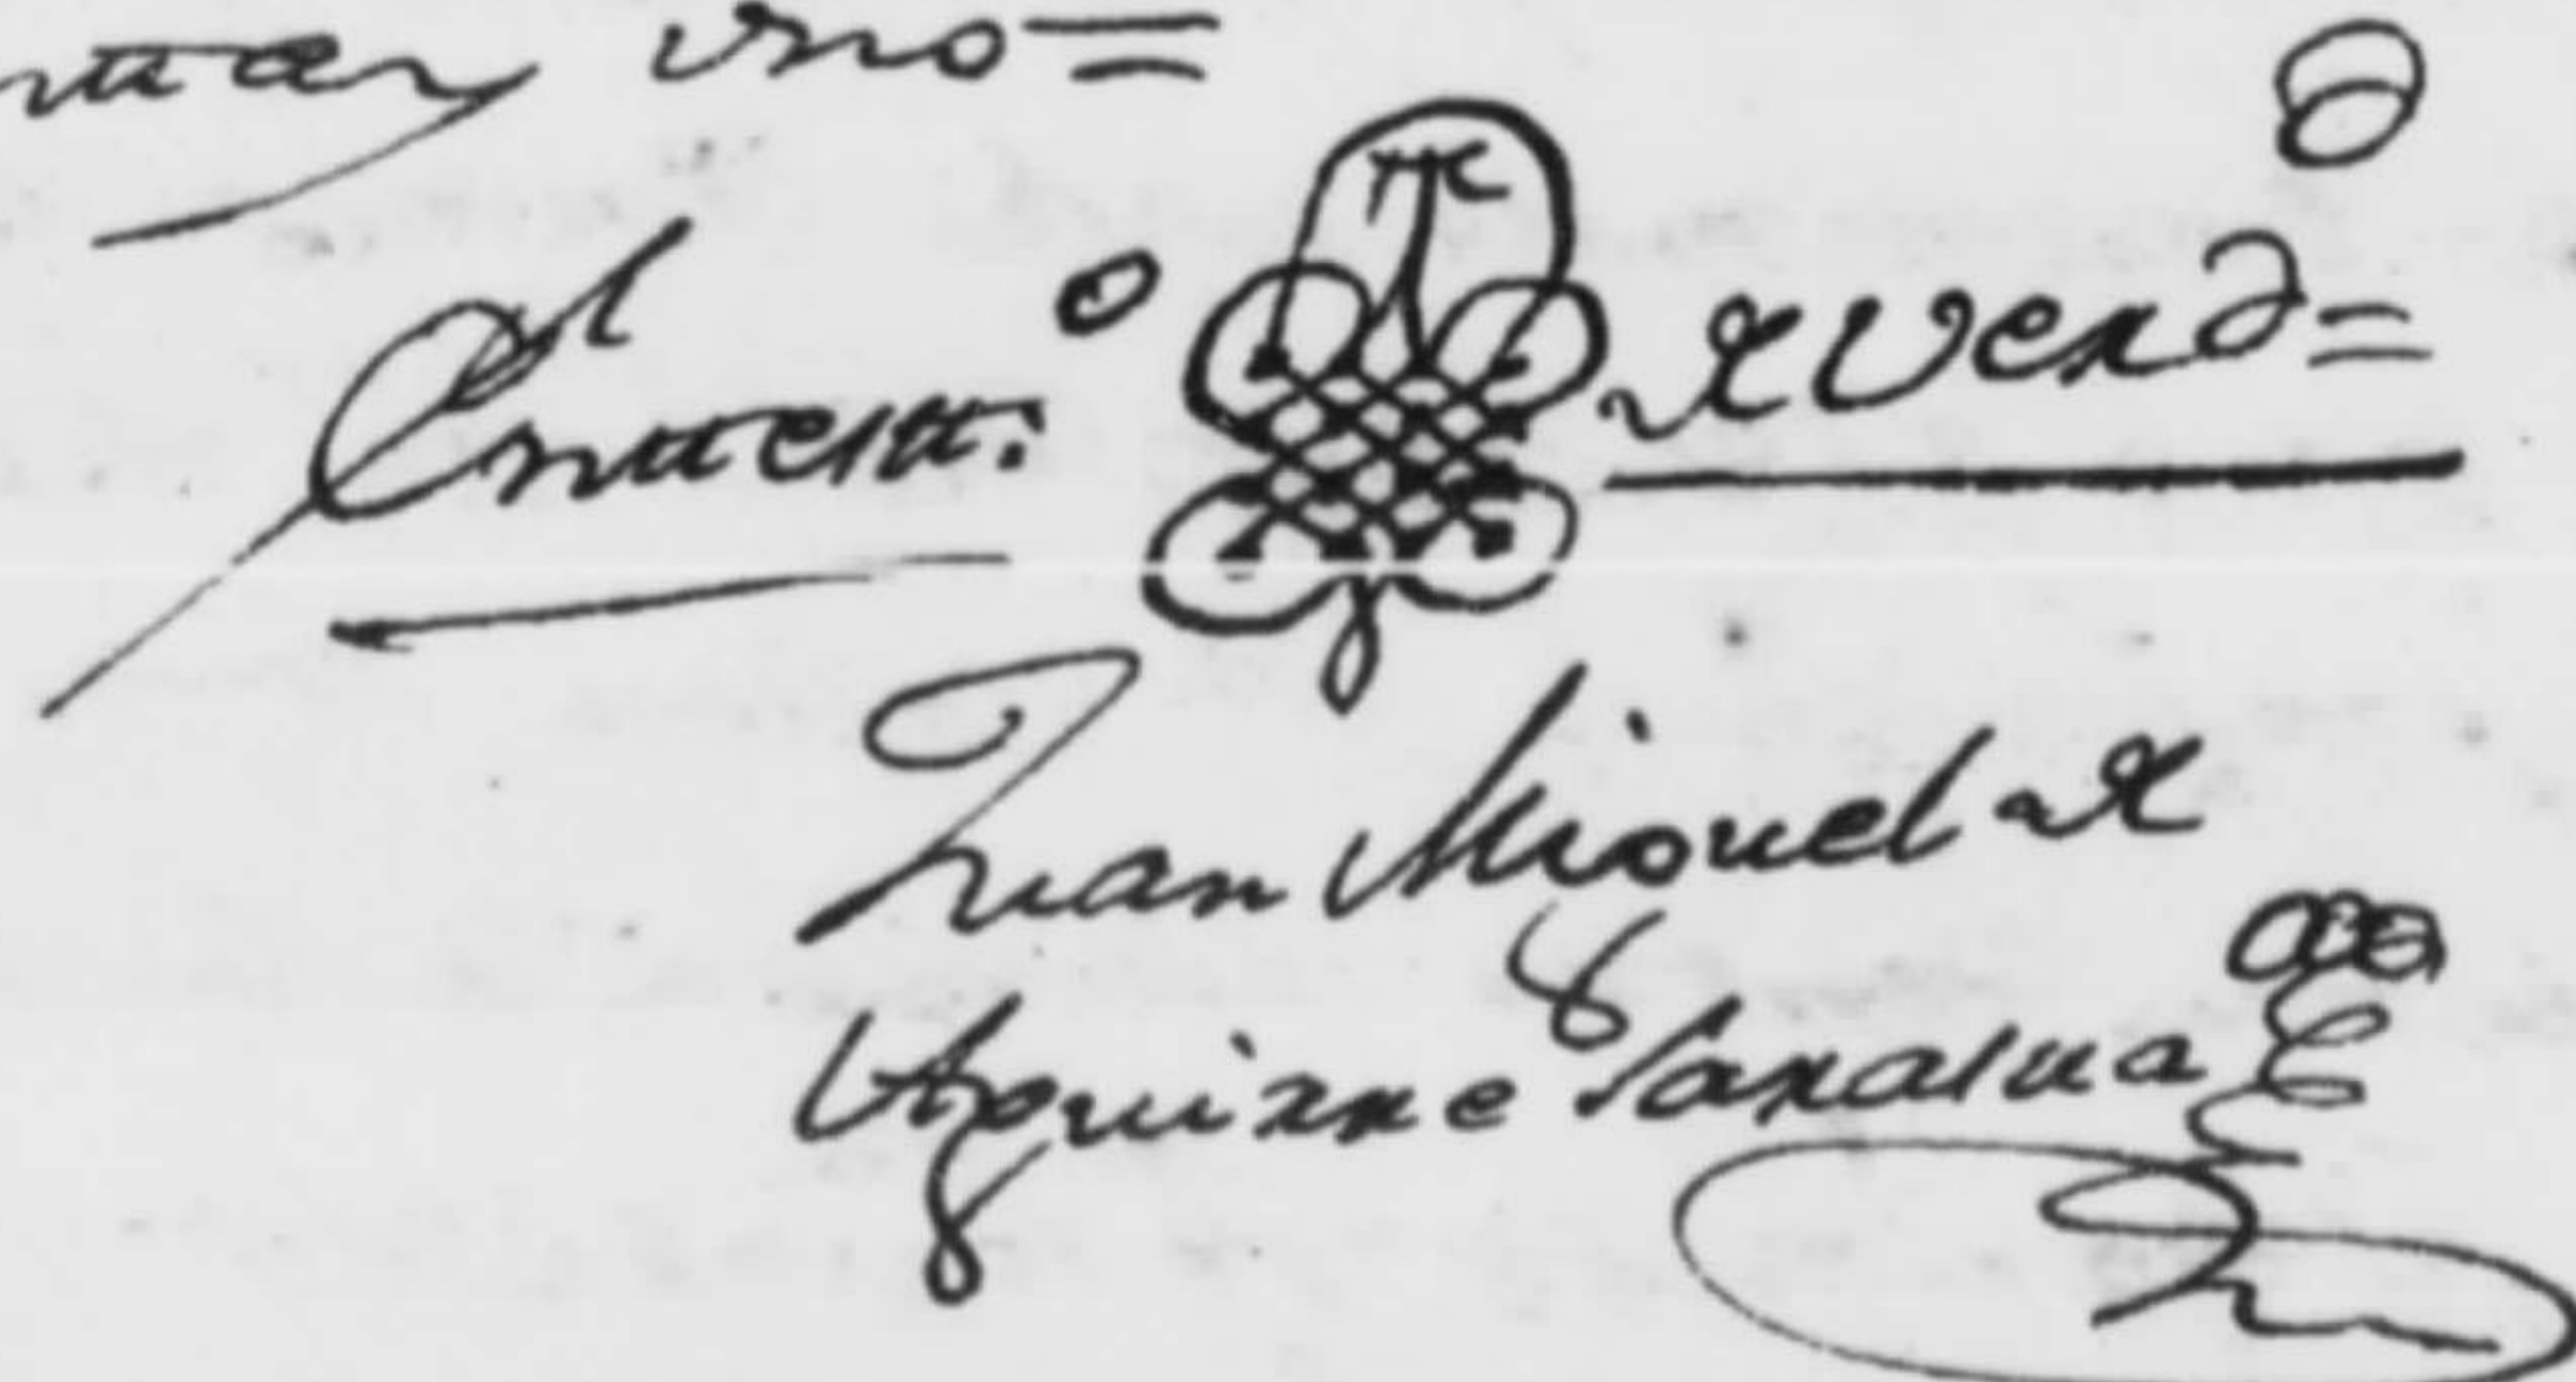 vno=
En testt.º de verd=
Juan Miguel de
Aguirre Saralua